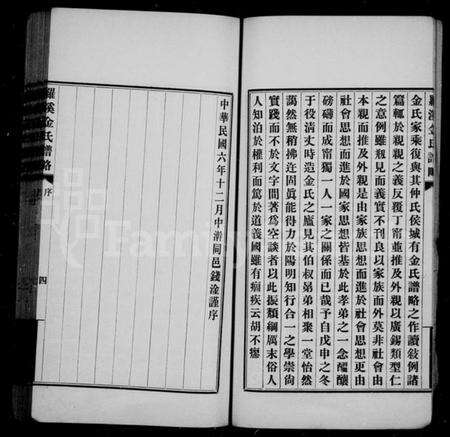 金氏家乘復與其仲氏侯城有金氏譜略之作讀敍例諸
篇輒於親親之義反覆丁甯並推及外親以廣錫類型仁
之意例雖剏見而義實不刊良以家族而外莫非社會由
本親而推及外親是由家族思想而進於社會思想更由
社會思想而進於國家思想皆基於此孝弟之一念醞釀
磅礴而成甯獨一人一家之關係而已哉予自戊申之冬
于役淸丈時造金氏之廬見其伯叔弟弟相聚一堂怡然
藹然無稍拂迕固眞能得力於陽明知行合一之學崇尙
實踐而不於文字間著爲空談者以此振頽綱厲末俗人
人知泊於權利而篤於道義國雖有痼疾云胡不瘳
中華民國六年十二月中澣同邑錢淦謹序
羅溪金氏譜略
序
四